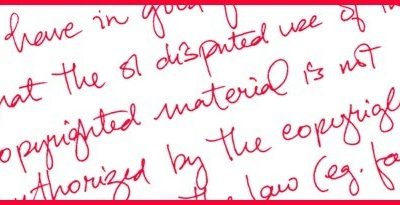 have in good
hat the disputed use of
opyrighted material is not
thorized by the copyrigh
the law (eg. fa